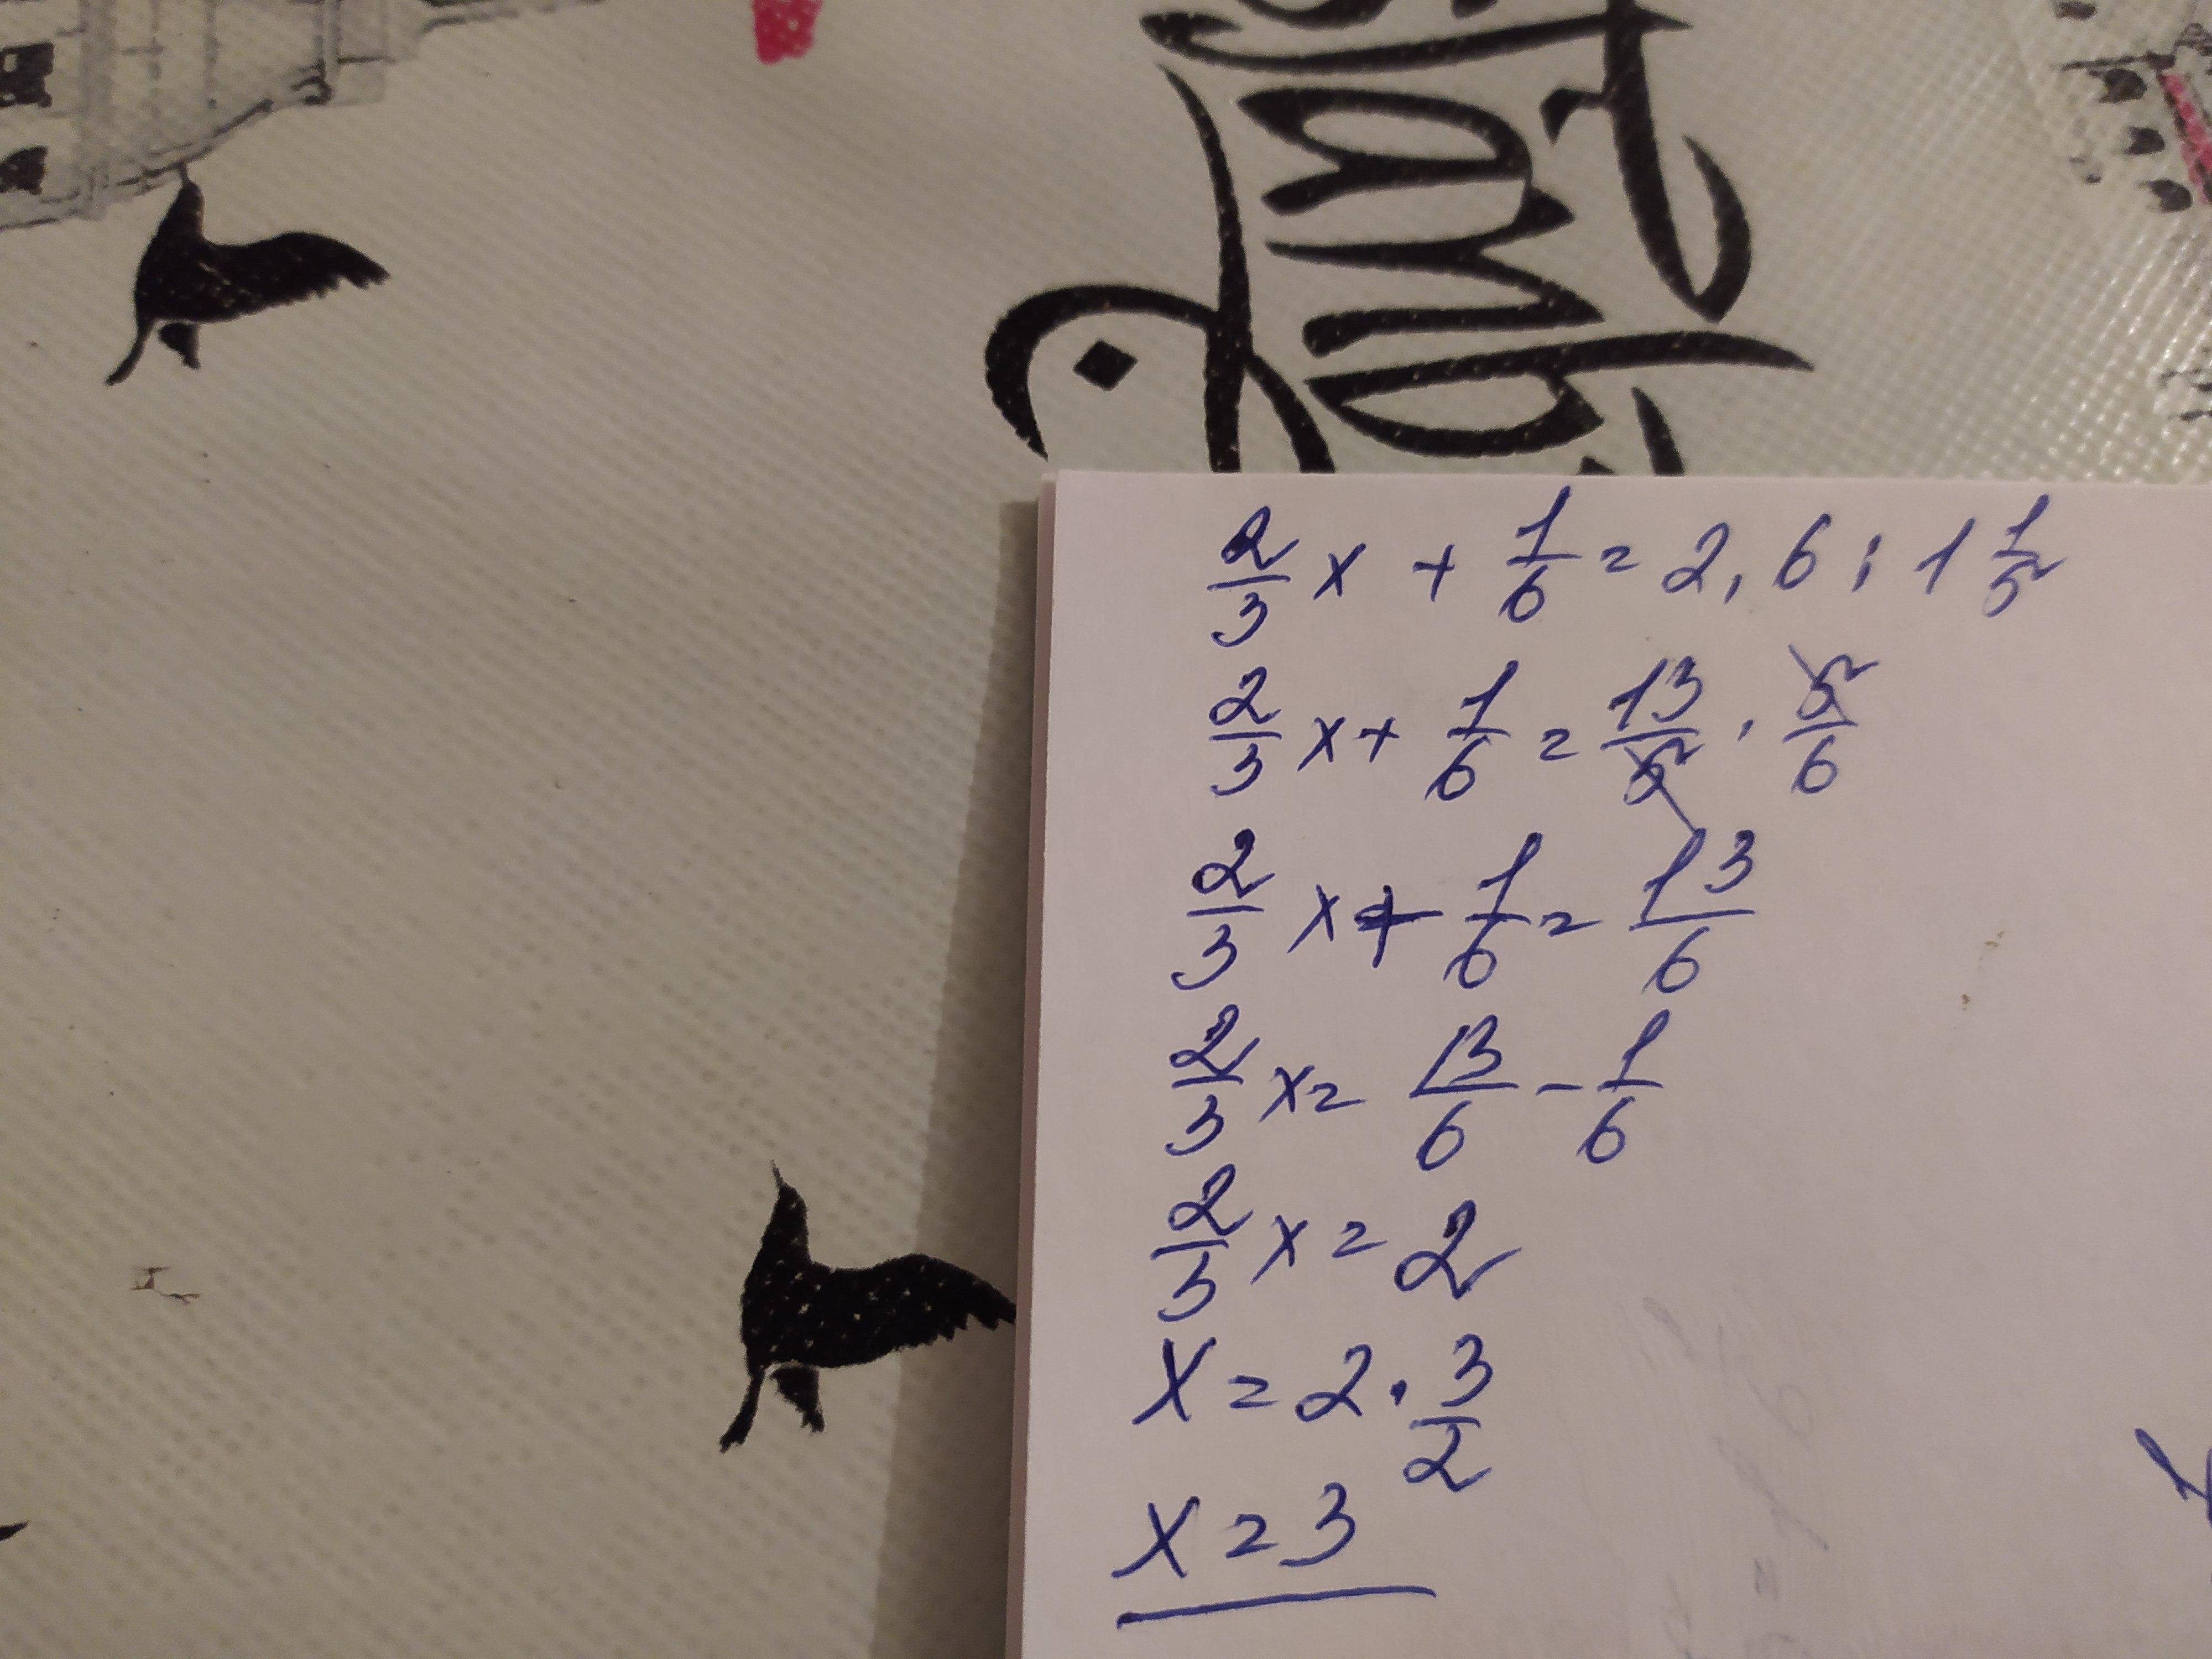 2/3 x + 1/6 = 2,6 : 1 1/5
2/3 x + 1/6 = 13/5 · 5/6
2/3 x + 1/6 = 13/6
2/3 x = 13/6 - 1/6
2/3 x = 2
x = 2 · 3/2
x = 3